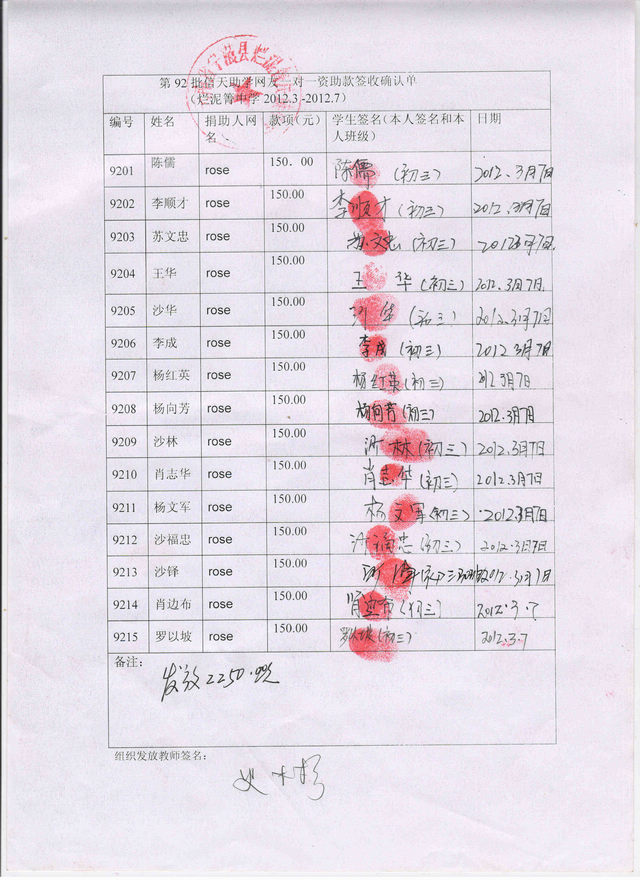 第 92 批信天助学网友一对一资助款签收确认单
（烂泥箐中学 2012.3 -2012.7）
编号 姓名 捐助人网名 款项（元） 学生签名（本人签名和本人班级） 日期
9201 陈儒 rose 150.00 陈儒（初三） 2012.3月7日
9202 李顺才 rose 150.00 李顺才（初三） 2012.3月7日
9203 苏文忠 rose 150.00 苏文忠（初三） 2012.3月7日
9204 王华 rose 150.00 王华（初三） 2012.3月7日.
9205 沙华 rose 150.00 沙华（初三） 2012.3月7日
9206 李成 rose 150.00 李成（初三） 2012.3月7日
9207 杨红英 rose 150.00 杨红英（初三） 2012.3月7日
9208 杨向芳 rose 150.00 杨向芳（初三） 2012.3月7日
9209 沙林 rose 150.00 沙林（初三） 2012.3月7日
9210 肖志华 rose 150.00 肖志华（初三） 2012.3月7日
9211 杨文军 rose 150.00 杨文军（初三） 2012.3月7日
9212 沙福忠 rose 150.00 沙福忠（初三） 2012.3月7日
9213 沙铎 rose 150.00
9214 肖边布 rose 150.00 （初三） 2012.3.7
9215 罗以坡 rose 150.00 罗以坡（初三） 2012.3.7
备注：
发放2250.
组织发放教师签名：